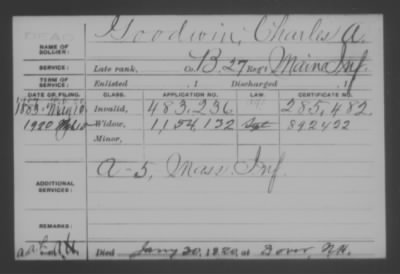 DEAD
Goodwin, Charles A.
NAME OF SOLDIER:
SERVICE: Late rank, Co. B, 27 Reg't Maine Inf.
TERM OF SERVICE: Enlisted , 1 Discharged , 1
DATE OF FILING. CLASS. APPLICATION NO. LAW. CERTIFICATE NO.
1883, Invalid, 483,236 285,482
1920 Widow, 1,154,132 892422
Minor,
A-5, Mass. Inf.
ADDITIONAL SERVICES:
REMARKS:
Died Jany 30, 1920, at Dover, N.H.